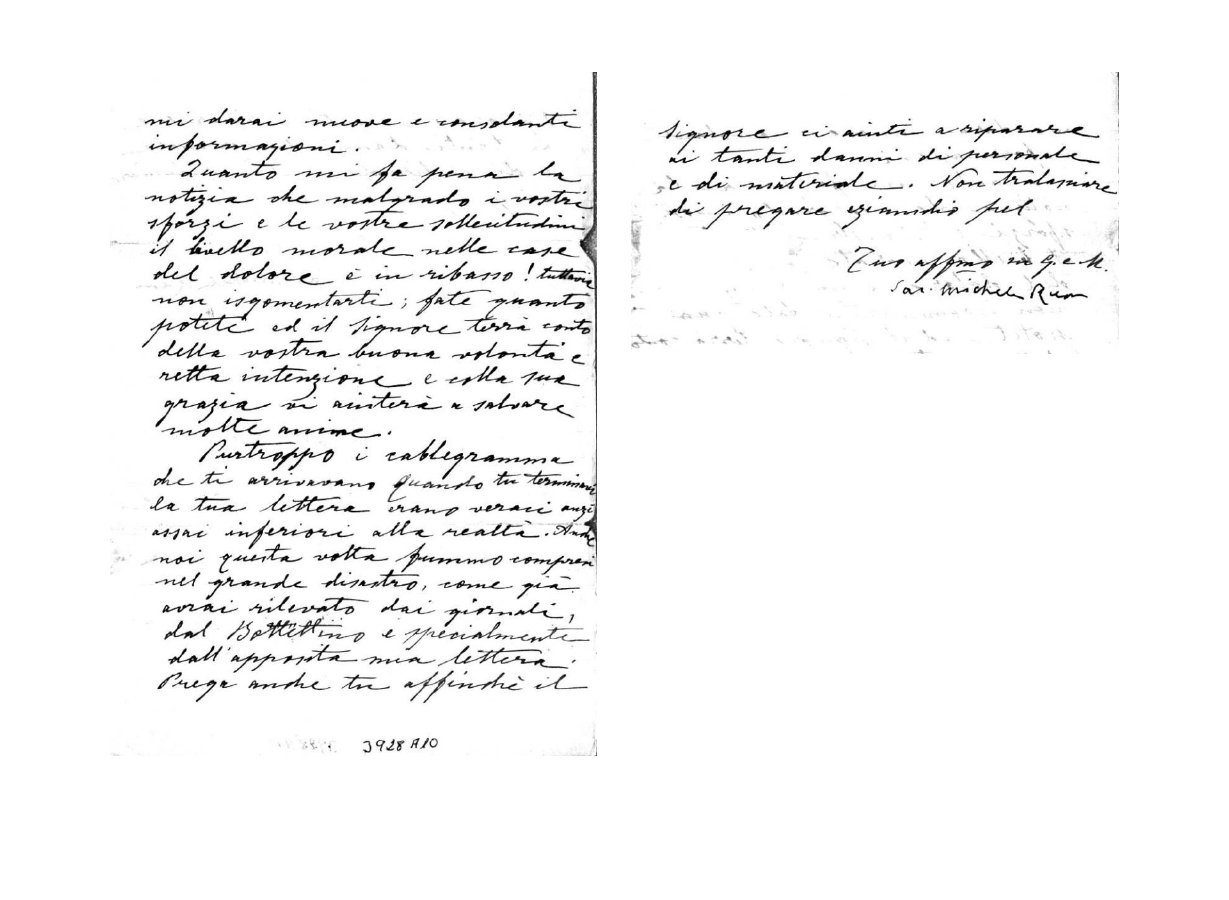 mi darai nuove e consolanti
informazioni.
Quanto mi fa pena la
notizia che malgrado i vostri
sforzi e le vostre sollecitudini
il livello morale nelle case
del dolore è in ribasso! tuttavia
non isgomentarti; fate quanto
potete ed il Signore terrà conto
della vostra buona volontà e
retta intenzione e colla sua
grazia vi aiuterà a salvare
molte anime.
Purtroppo i cablegramma
che ti arrivavano quando tu terminavi
la tua lettera erano veraci anzi
assai inferiori alla realtà. Anche
noi questa volta fummo compresi
nel grande disastro, come già
avrai rilevato dai giornali,
dal Bollettino e specialmente
dall'apposita mia lettera.
Prega anche tu affinchè il
3928 A10
Signore ci aiuti a riparare
ai tanti danni di personale
e di materiale. Non tralasciare
di pregare eziandio pel
Tuo affmo in G. e M.
Sac. Michele Rua